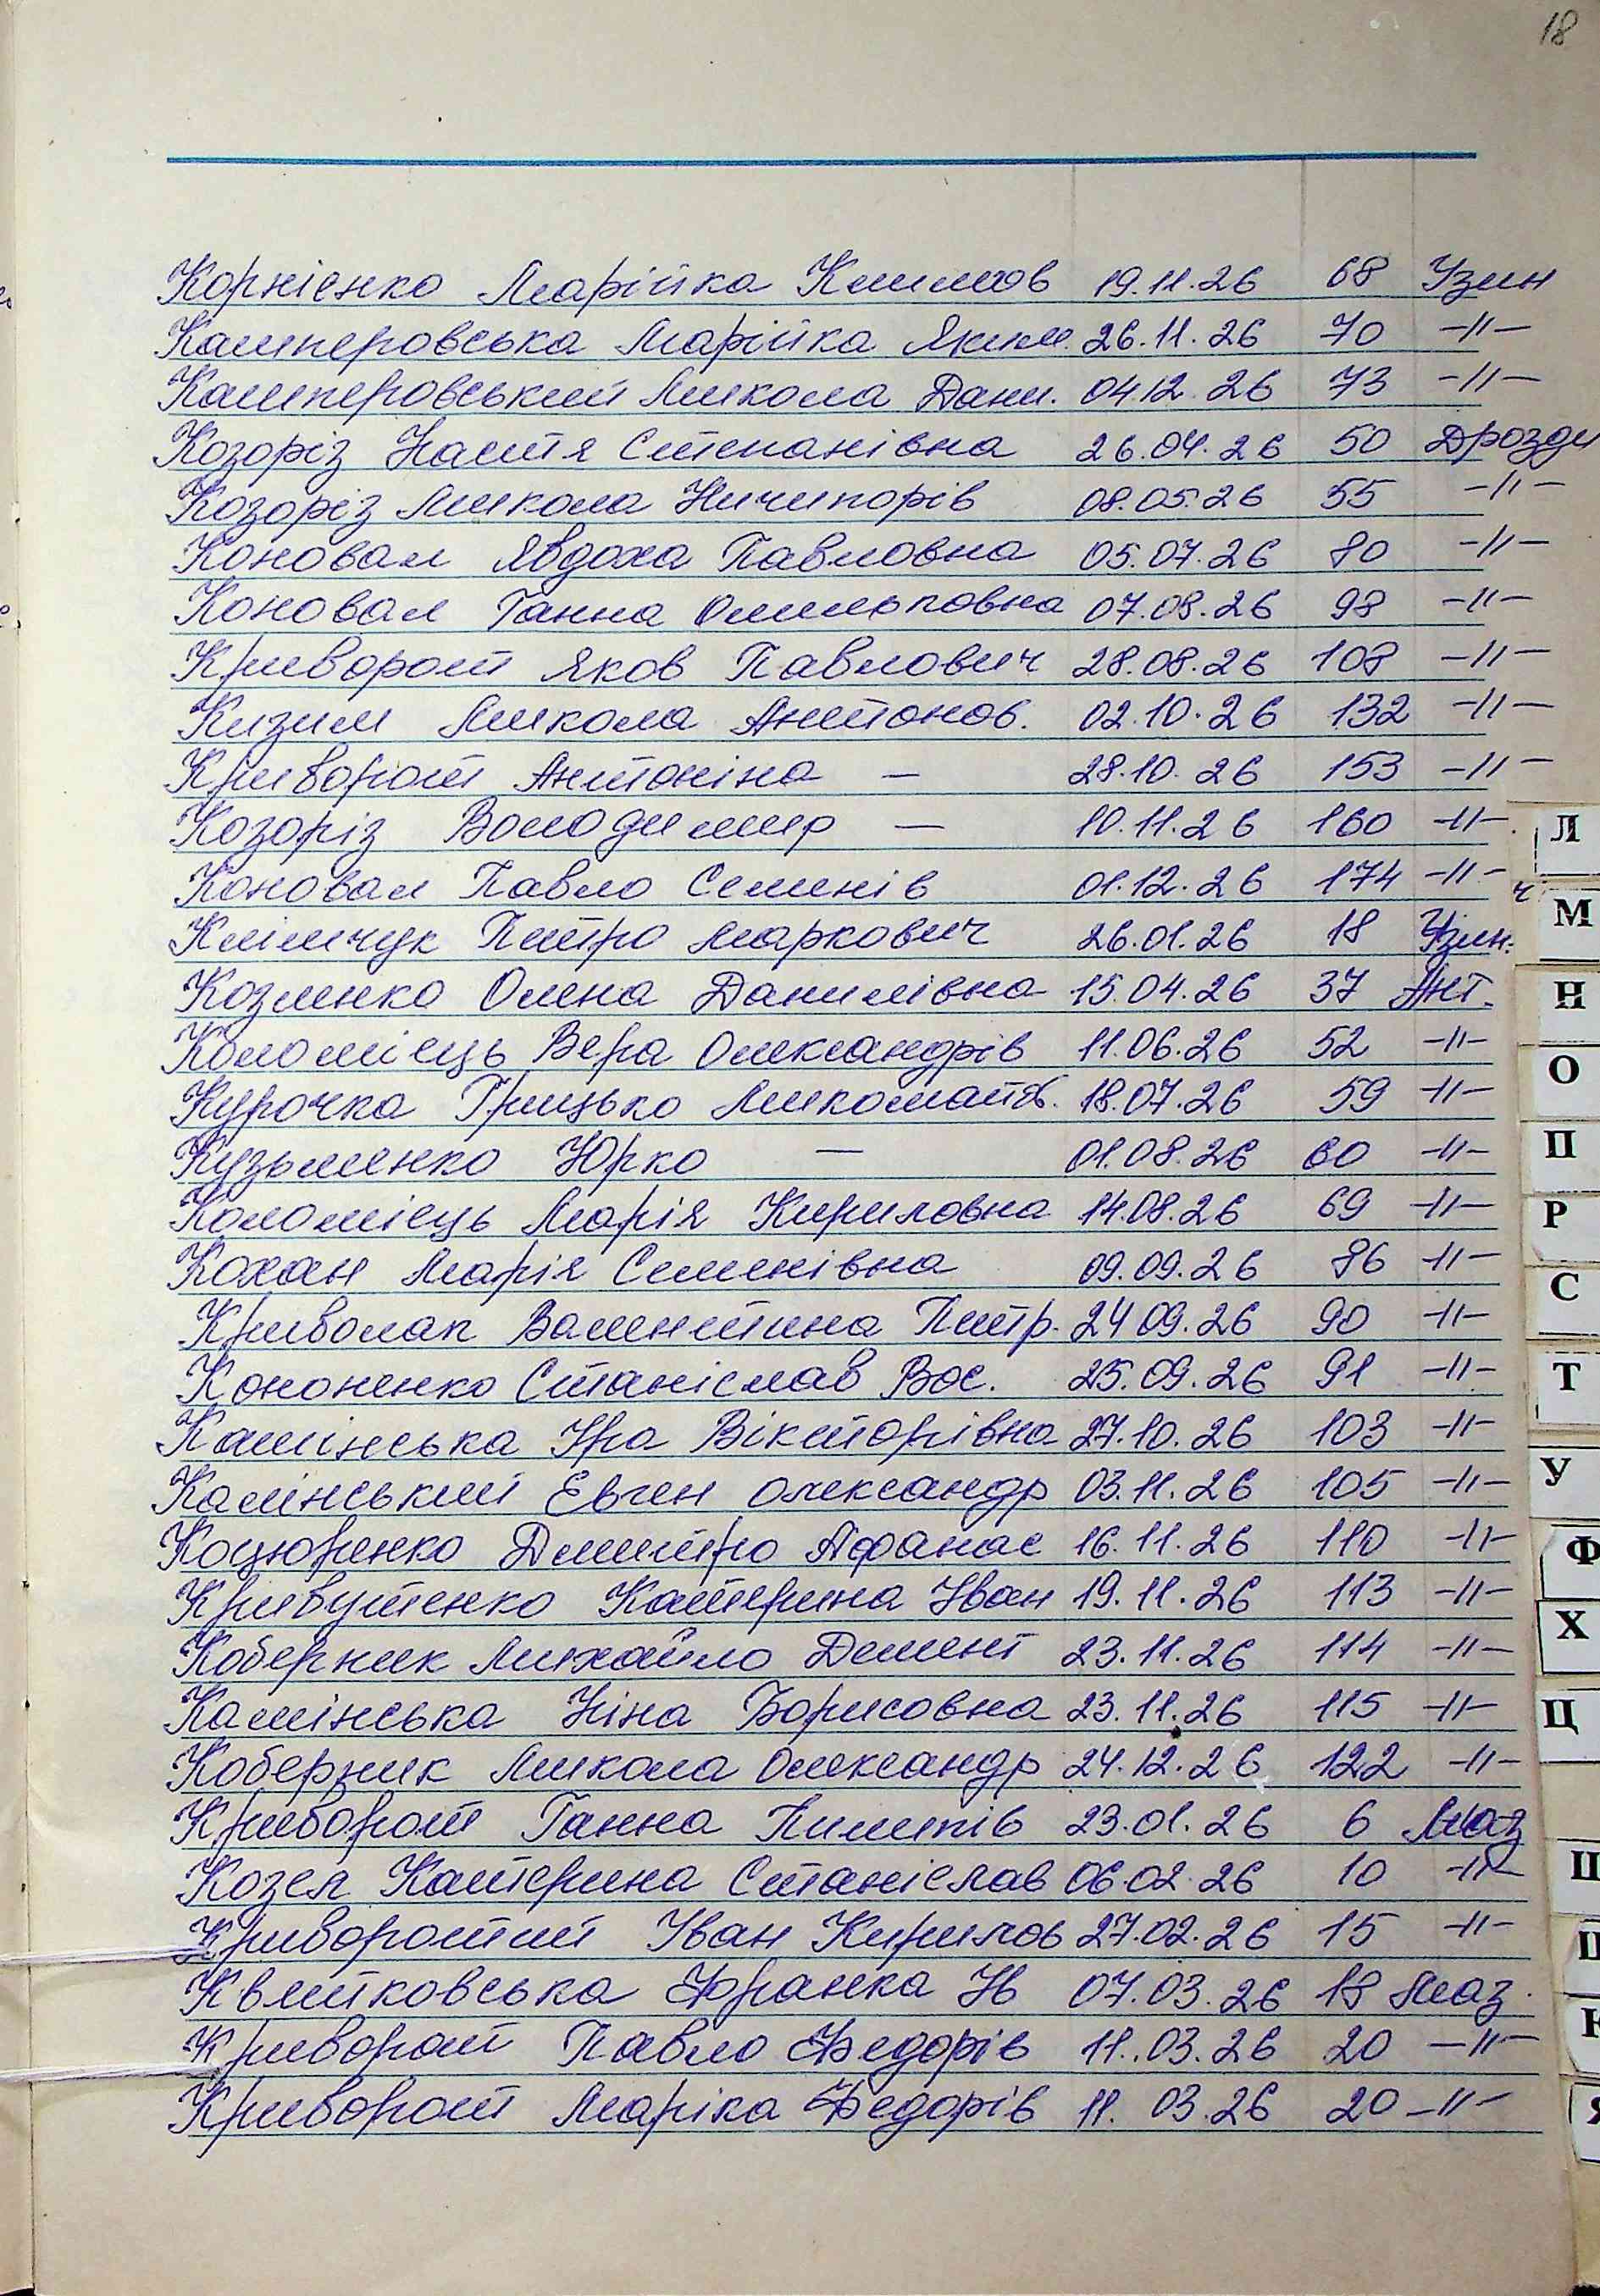 18
Корнієнко Марійка Климов 19.11.26 68 Узин
Камперовська Марійка Яким. 26.11.26 70 -//-
Камперовський Микола Дани. 04.12.26 73 -//-
Козоріз Настя Степанівна 26.04.26 50 Дрозди
Козоріз Микола Ничипорів 08.05.26 55 -//-
Коновал Явдоха Павловна 05.07.26 80 -//-
Коновал Ганна Омельповна 07.08.26 98 -//-
Криворот Яков Павлович 28.08.26 108 -//-
Кизим Микола Антонов. 02.10.26 132 -//-
Криворот Антоніна — 28.10.26 153 -//-
Козоріз Володимир — 10.11.26 160 -//-
Коновал Павло Семенів 01.12.26 174 -//-
Клімчук Петро Маркович 26.01.26 18 Узин.
Козленко Олена Данилівна 15.04.26 37 Ант.
Коломієць Вера Олександрів 11.06.26 52 -//-
Курочка Грицько Миколайов. 18.07.26 59 -//-
Кузьменко Юрко — 01.08.26 60 -//-
Коломієць Марія Кириловна 14.08.26 69 -//-
Кохан Марія Семенівна 09.09.26 86 -//-
Криволап Валентина Петр. 24.09.26 90 -//-
Кононенко Станіслав Вос. 25.09.26 91 -//-
Камінська Іра Вікторівна 27.10.26 103 -//-
Камінський Евген Олександр 03.11.26 105 -//-
Коцюренко Дмитро Афанас 16.11.26 110 -//-
Кривутенко Катерина Іван 19.11.26 113 -//-
Коберник Михайло Демент 23.11.26 114 -//-
Камінська Ніна Борисовна 23.11.26 115 -//-
Коберник Микола Олександр 24.12.26 122 -//-
Криворот Ганна Пилипів 23.01.26 6 Маз
Козел Катерина Станіслав 06.02.26 10 -//-
Криворотий Іван Кирилов 27.02.26 15 -//-
Квитковська Франка Ів 07.03.26 18 Маз.
Криворот Павло Федорів 11.03.26 20 -//-
Криворот Маріка Федорів 11.03.26 20 -//-
Л
М
Н
О
П
Р
С
Т
У
Ф
Х
Ц